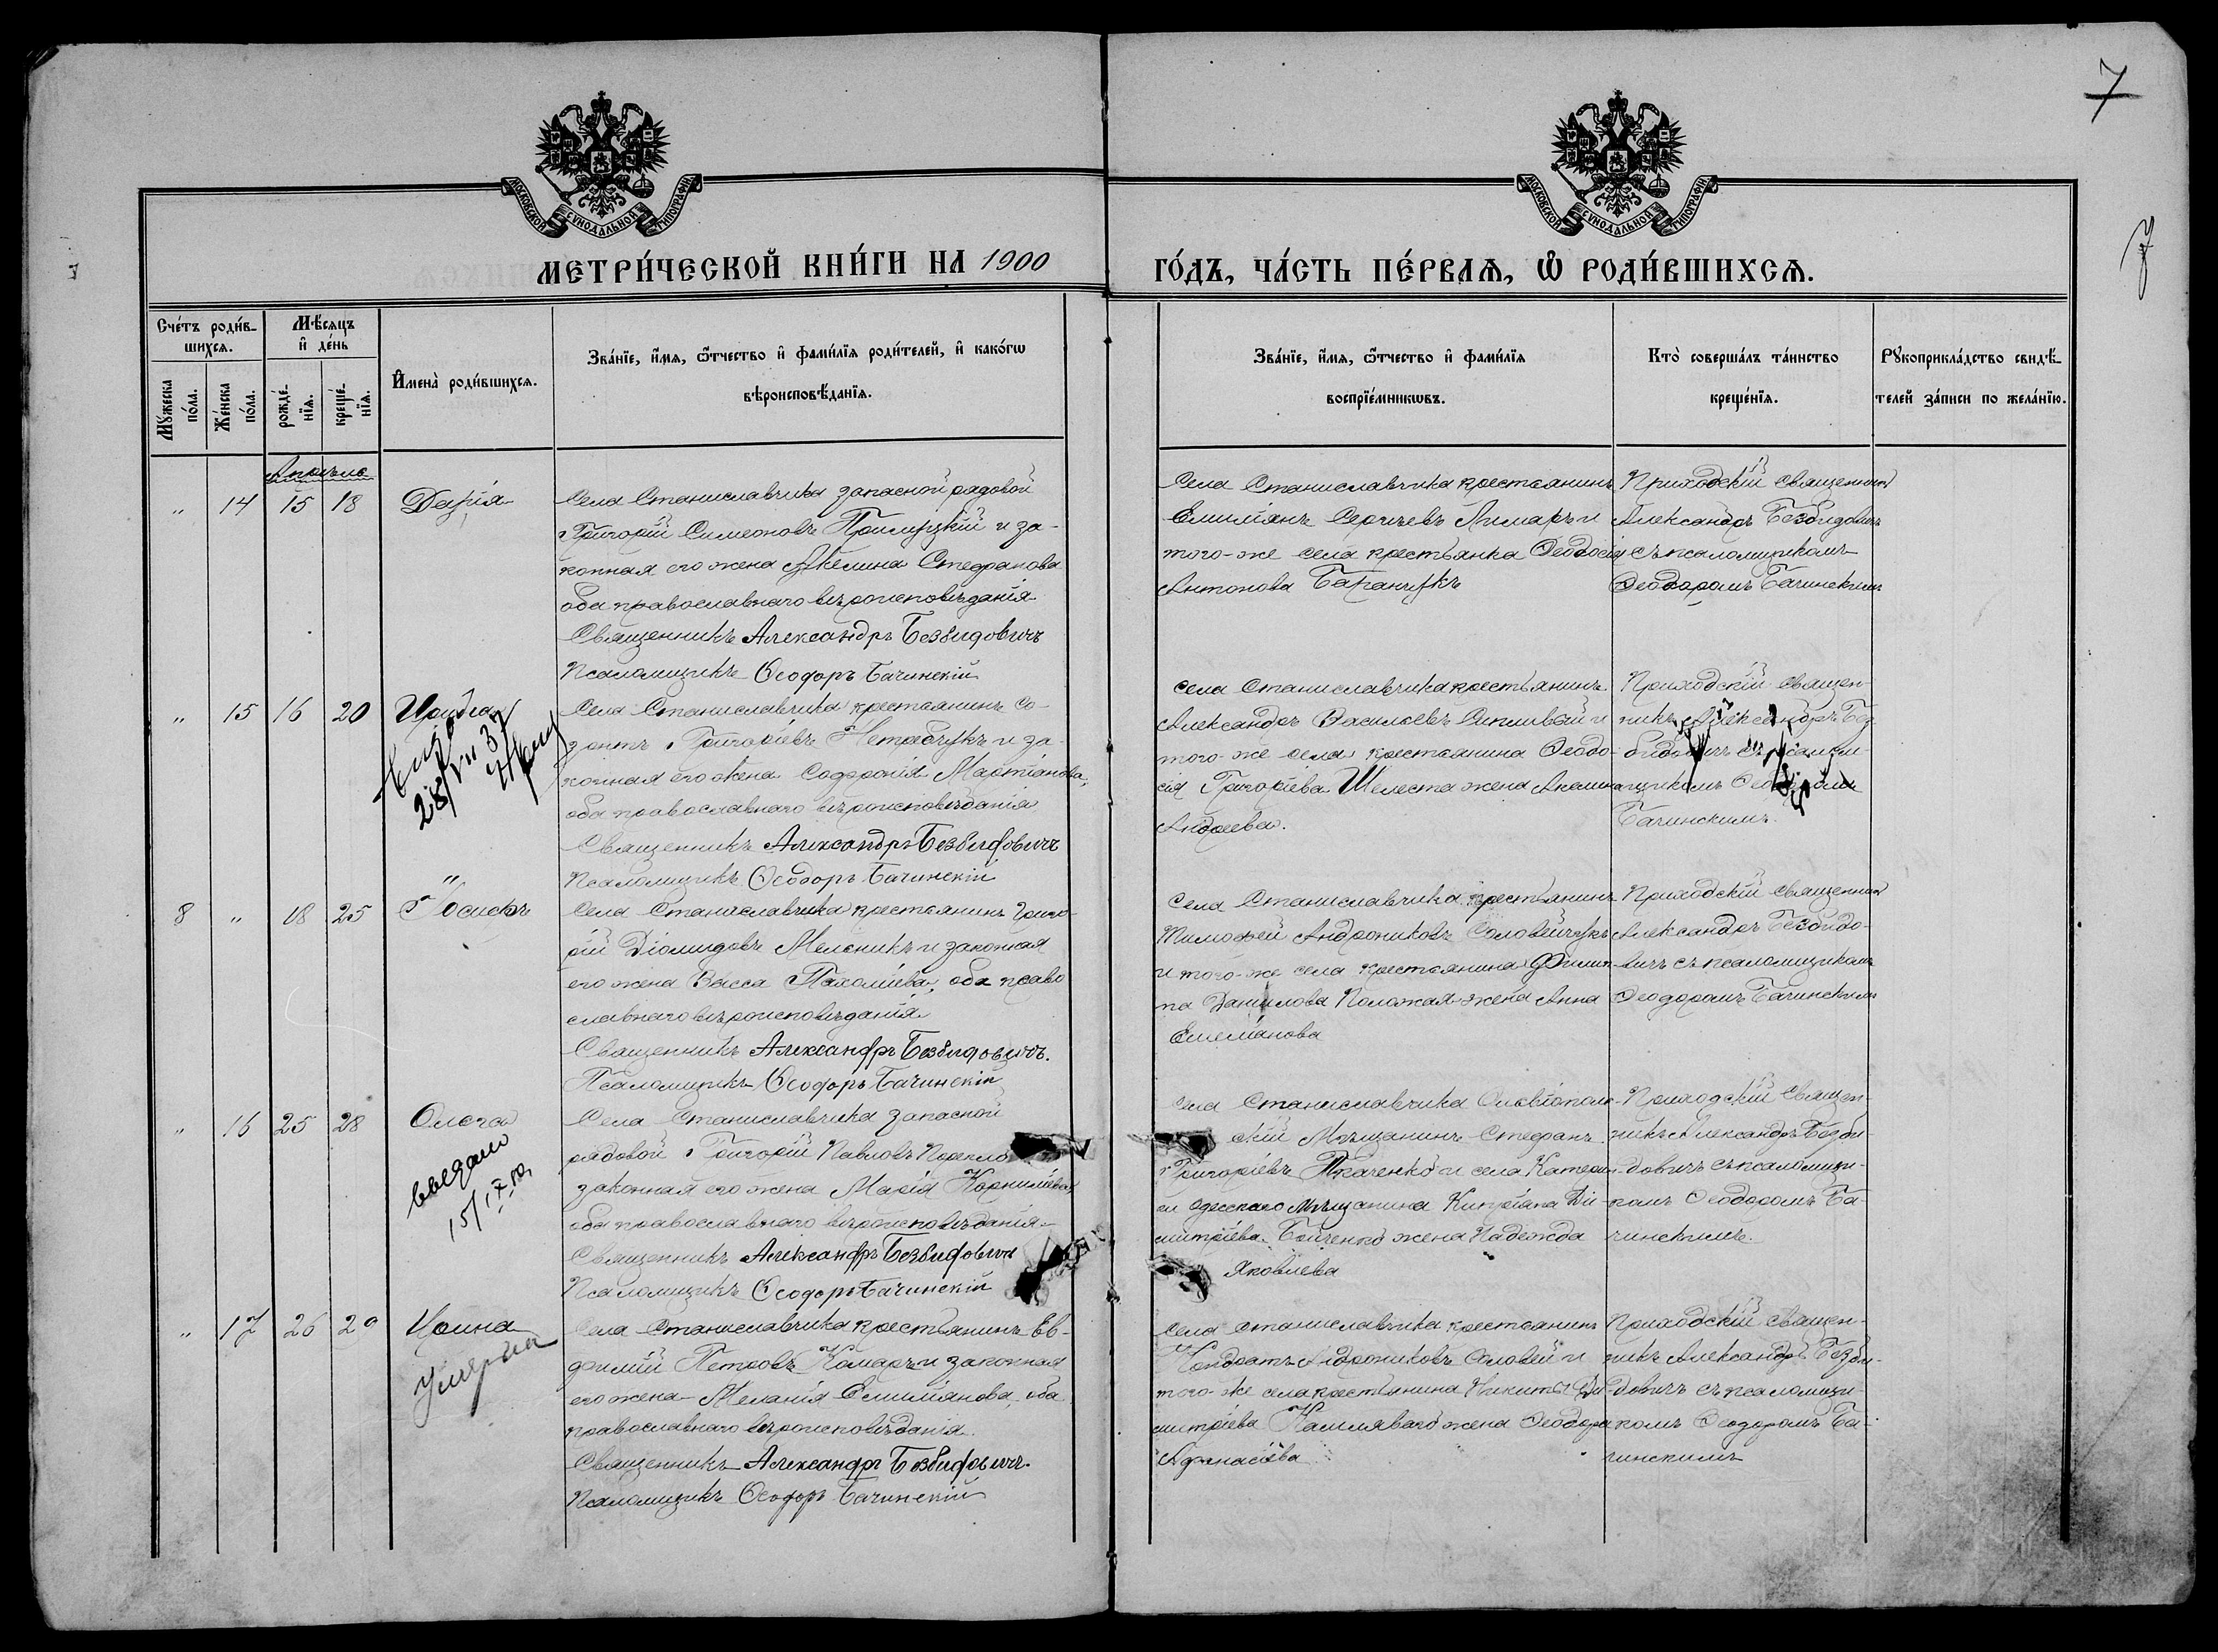 7
7
МОСКОВСКОЙ СѴНОДАЛЬНОЙ ТИПОГРАФІИ
МОСКОВСКОЙ СѴНОДАЛЬНОЙ ТИПОГРАФІИ
МЕТРИ́ЧЕСКОЙ КНИ́ГИ НА 1900 ГО́ДЪ, ЧА́СТЬ ПЕ́РВАѦ, Ѡ҆ РОДИ́ВШИХСѦ.
Сче́тъ роди́в-
шихсѧ.
Мꙋ́жеска
по́ла.
Же́нска
по́ла.
Мѣ́сѧцъ
и҆ де́нь
рожде́-
нїѧ.
креще́-
нїѧ.
И҆мена̀ роди́вшихсѧ.
Зва́нїе, и҆́мѧ, ѻ҆́тчество и҆ фами́лїѧ роди́телей, и҆ како́гѡ
вѣроисповѣ́данїѧ.
Зва́нїе, и҆́мѧ, ѻ҆́тчество и҆ фами́лїѧ
воспрїе́мникѡвъ.
Кто̀ соверша́лъ та́инство
креще́нїѧ.
Рꙋкоприкла́дство свидѣ́-
телей за́писи по жела́нїю.
Апрѣль
„ 14 15 18 Дарія
Села Станиславчика запасной рядовой
Григорій Симеоновъ Примуцкій и за-
конная его жена Акелина Стефанова
оба православнаго вѣроисповѣданія
Священникъ Александръ Безвидовичъ
Псаломщикъ Ѳеодоръ Бачинскій
Села Станиславчика крестьянинъ
Емиліянъ Сергіевъ Лимаръ и
того-же села крестьянка Ѳеодосія
Антонова Баранчукъ
Приходскій священникъ
Александръ Безвидовичъ
съ псаломщикомъ
Ѳеодоромъ Бачинскимъ
„ 15 16 20
28/VII 37
Села Станиславчика крестьянинъ Со-
зонтъ Григоріевъ Нетребчукъ и за-
конная его жена Софронія Мартіанова,
оба православнаго вѣроисповѣданія
Священникъ Александръ Безвидовичъ
Псаломщикъ Ѳеодоръ Бачинскій
Села Станиславчика крестьянинъ
Александръ Васильевъ и
того-же села крестьянина Ѳеодо-
сія Григоріева Шелеста жена Акилина
Андреева.
Приходскій священ-
никъ Александръ Без-
видовичъ съ псалом-
щикомъ Ѳеодоромъ
Бачинскимъ.
8 „ 18 25 Іосифъ
Села Станиславчика крестьянинъ Григо-
рій Діомидовъ Мельникъ и законная
его жена Васса Пахоміева, оба право
славнаго вѣроисповѣданія
Священникъ Александръ Безвидовичъ.
Псаломщикъ Ѳеодоръ Бачинскій
Села Станиславчика крестьянинъ
Тимофей Андрониковъ Соловейчукъ
и того-же села крестьянина Филип-
па Данилова жена Анна
Емеліанова
Приходскій священникъ
Александръ Безвидо-
вичъ съ псаломщикомъ
Ѳеодоромъ Бачинскимъ
„ 16 25 28 Ольга
выдано
15/IX
Села Станиславчика запасной
рядовой Григорій Павловъ
законная его жена Марія Корниліева,
оба православнаго вѣроисповѣданія
Священникъ Александръ Безвидовичъ
Псаломщикъ Ѳеодоръ Бачинскій
Села Станиславчика Ольвіополь-
скій Мѣщанинъ Стефанъ
Григоріевъ Ткаченко и села
Одесскаго Мѣщанина Кипріяна Ди-
митріева Бойченко жена Надежда
Яковлева
Приходскій священ-
никъ Александръ Безви-
довичъ съ псаломщи-
комъ Ѳеодоромъ Ба-
чинскимъ.
„ 17 26 29 Ирина
Умерла
Села Станиславчика крестьянинъ Ев-
фимій Петровъ Комаръ и законная
его жена Меланія Емиліянова, оба
православнаго вѣроисповѣданія.
Священникъ Александръ Безвидовичъ.
Псаломщикъ Ѳеодоръ Бачинскій
Села Станиславчика крестьянинъ
Кондратъ Андрониковъ Соловей и
того-же села крестьянина Никиты Ди-
митріева жена Ѳеодора
Афанасіева
Приходскій священ-
никъ Александръ Безви-
довичъ съ псаломщи-
комъ Ѳеодоромъ Ба-
чинскимъ